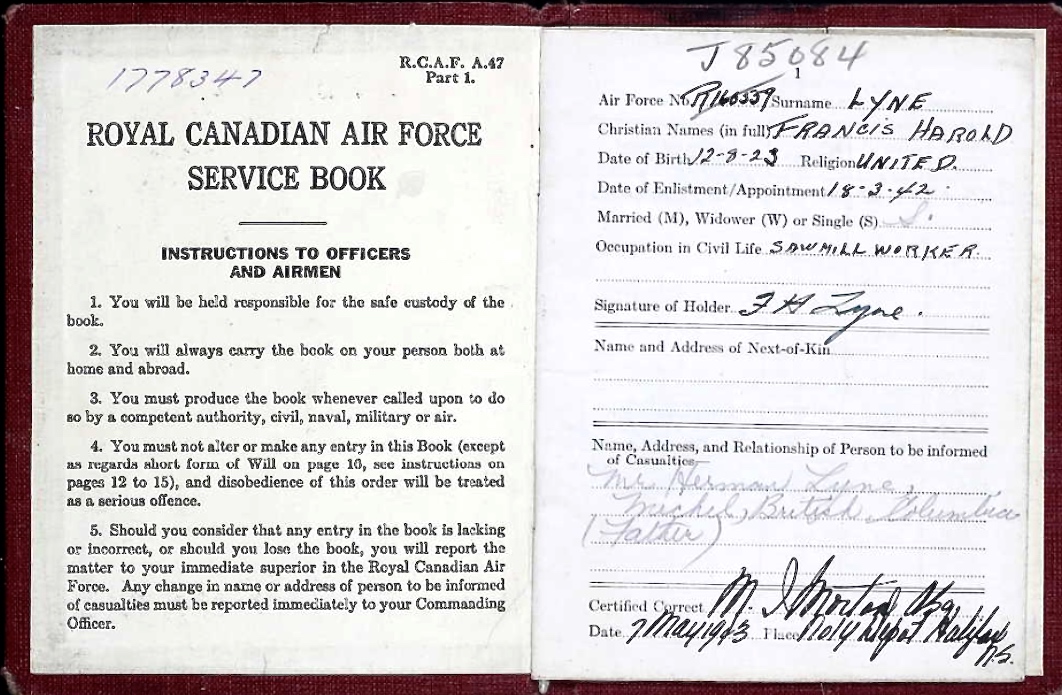 1778347
R.C.A.F. A.47
Part 1.
ROYAL CANADIAN AIR FORCE
SERVICE BOOK
INSTRUCTIONS TO OFFICERS
AND AIRMEN
1. You will be held responsible for the safe custody of the
book.
2. You will always carry the book on your person both at
home and abroad.
3. You must produce the book whenever called upon to do
so by a competent authority, civil, naval, military or air.
4. You must not alter or make any entry in this Book (except
as regards short form of Will on page 16, see instructions on
pages 12 to 15), and disobedience of this order will be treated
as a serious offence.
5. Should you consider that any entry in the book is lacking
or incorrect, or should you lose the book, you will report the
matter to your immediate superior in the Royal Canadian Air
Force. Any change in name or address of person to be informed
of casualties must be reported immediately to your Commanding
Officer.
J85084
1
Air Force No. R160339 Surname LYNE
Christian Names (in full) FRANCIS HAROLD
Date of Birth 12-8-23 Religion UNITED.
Date of Enlistment/Appointment 18-3-42
Married (M), Widower (W) or Single (S) S.
Occupation in Civil Life SAWMILL WORKER.
Signature of Holder F H Lyne.
Name and Address of Next-of-Kin
Name, Address, and Relationship of Person to be informed
of Casualties
Mr Herman Lyne,
Michel, British Columbia
(Father)
Certified Correct M. J Morton
Date 7 May 1943 Place No 1 Y Depot Halifax
N.S.